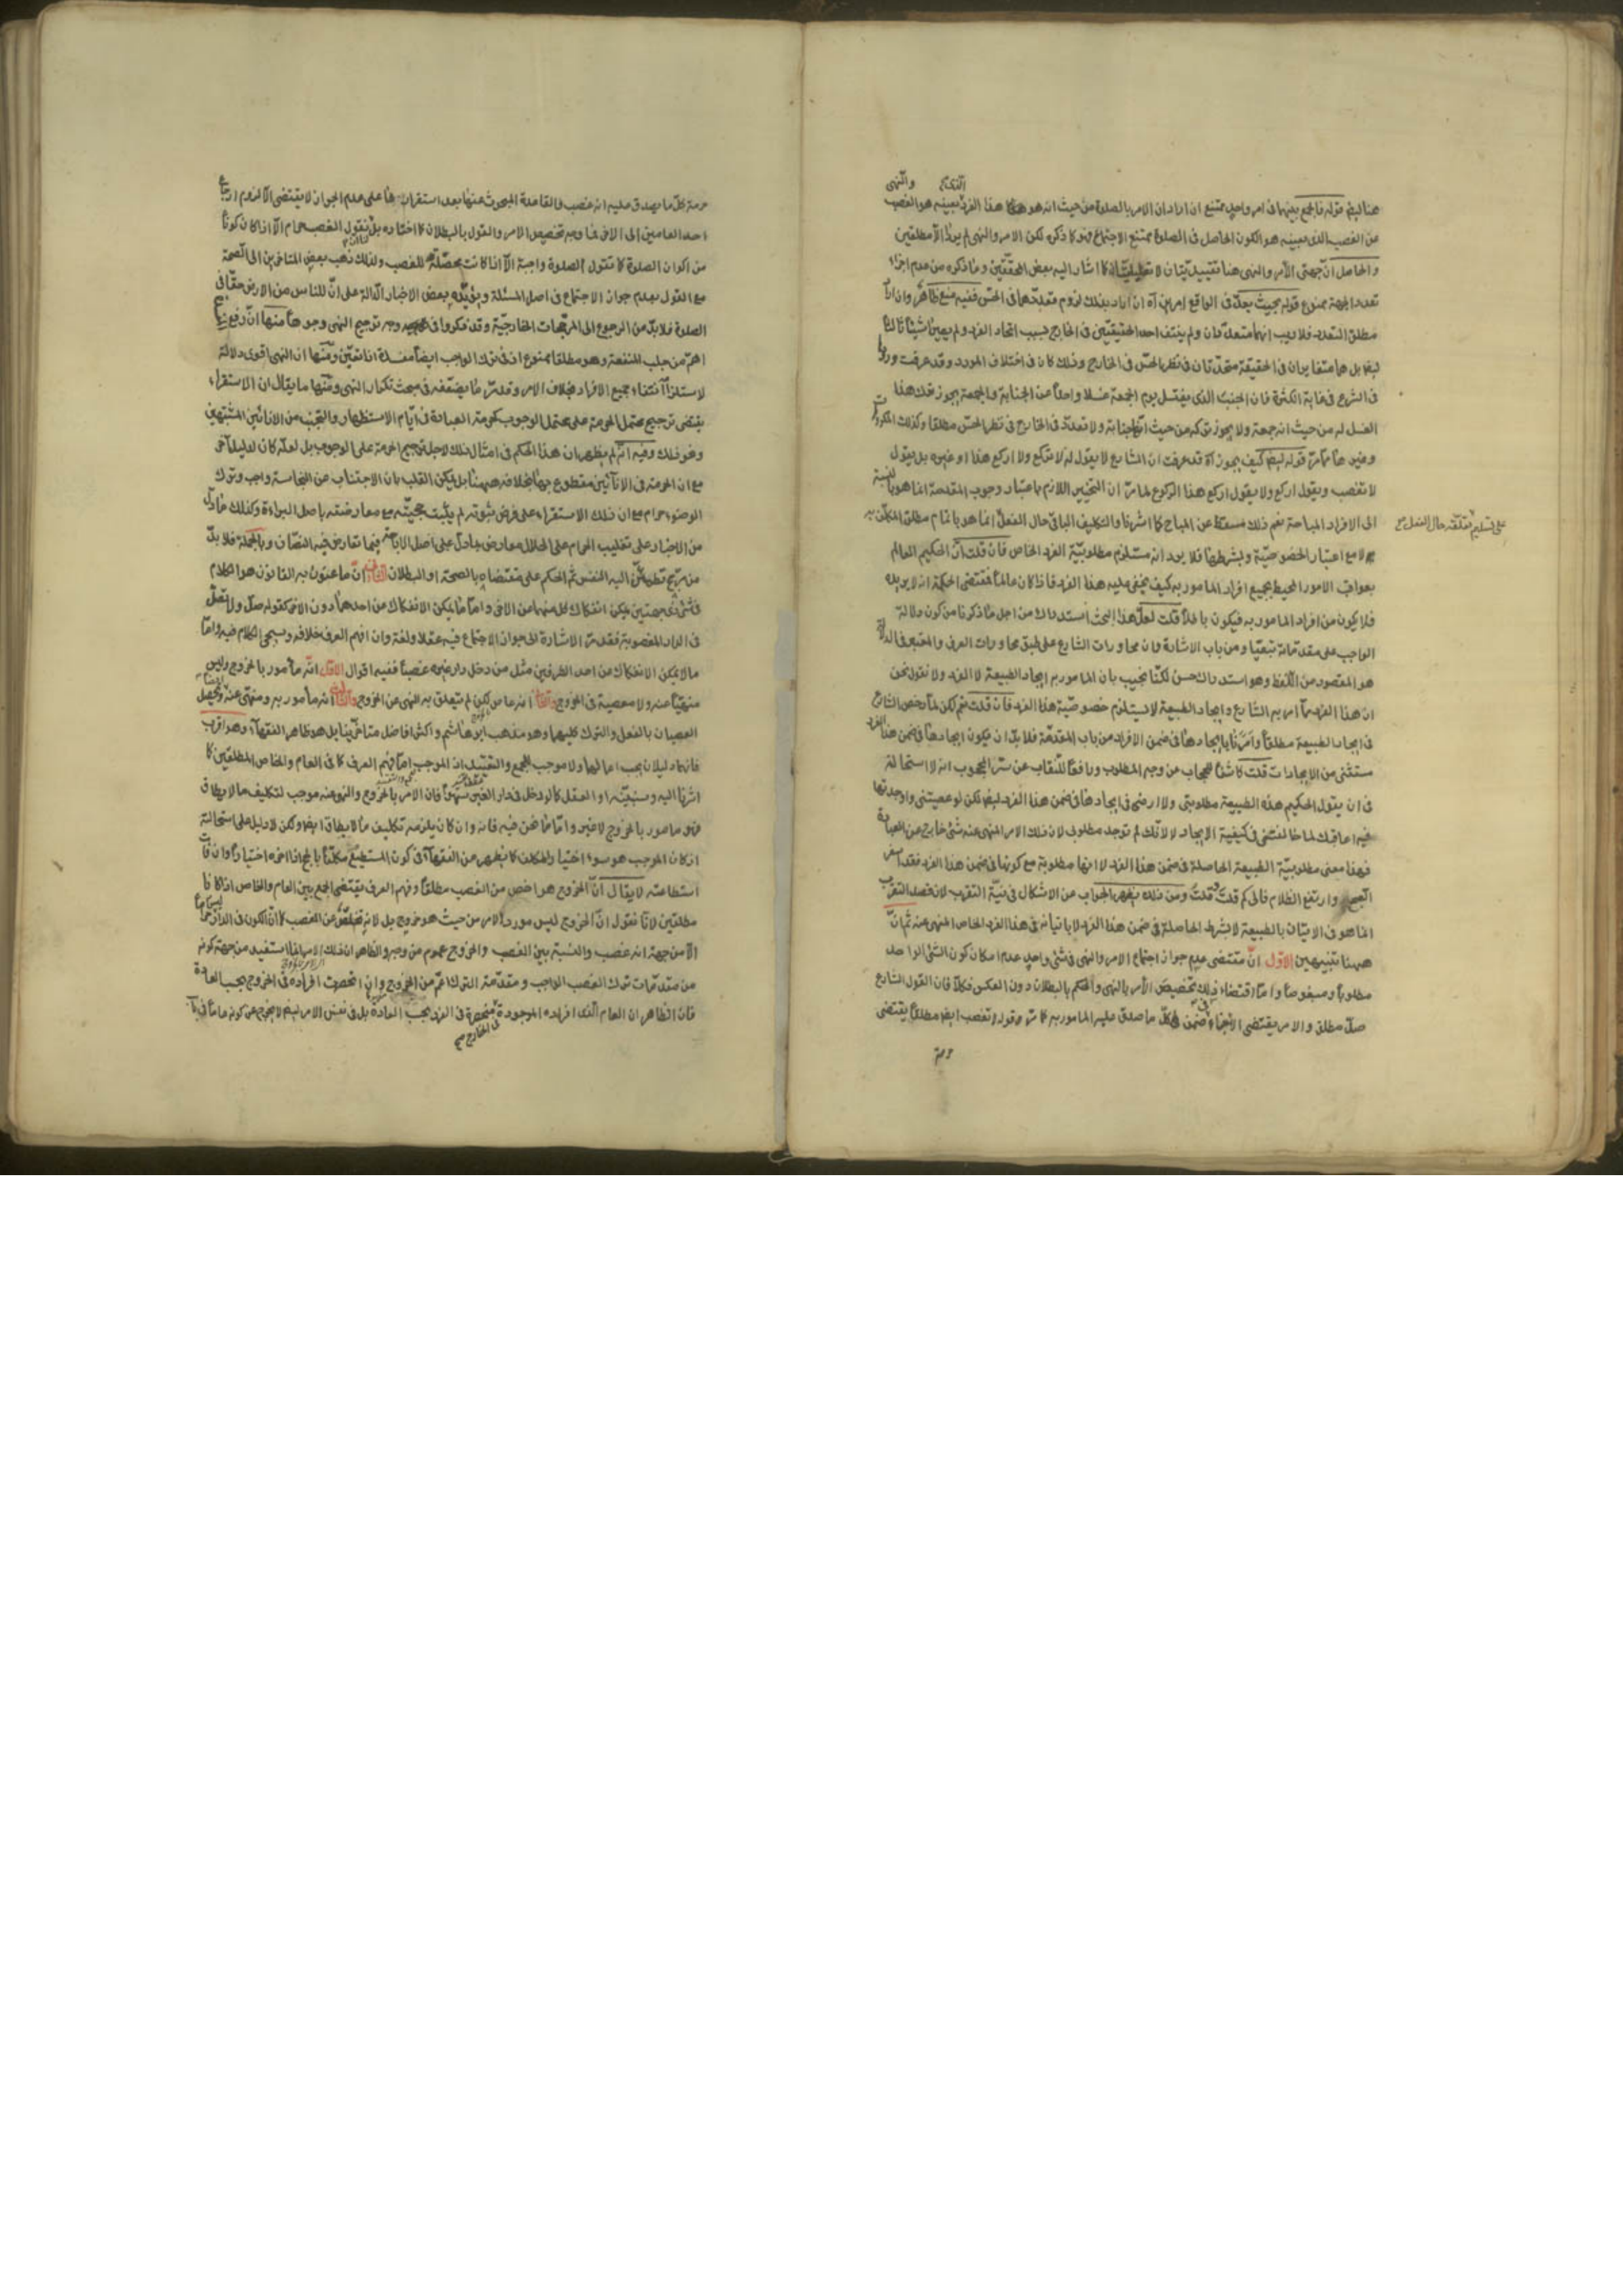 هنا ايضا قوله فالجمع بينهما في امر واحد ممتنع ان اراد ان الامر بالصلوة من حيث انه هو هكذا هذا الفرد بعينه هو الغصب
من الغصب الذي بعينه هو الكون الحاصل في الصلوة ممتنع الاجتماع فهو كما ذكره لكن الامر والنهي لم يردا الا مطلقين
والحاصل ان جهتي الامر والنهي هنا تقييديتان لا تعليليتان كما اشار اليه بعض المحققين وما ذكره من عدم اجزاء
تعدد الجهة ممنوع قوله بحيث يعد في الواقع امرين آه ان اراد بذلك لزوم تعددهما في الحس ففيه منع ظاهر وان اراد
مطلق التعدد فلا ريب انهما متعددتان ولم ينتف احد الحقيقتين في الخارج بسبب اتحاد الفرد ولم يصيرا شيئا ثالثا
ايضا بل هما متغايران في الحقيقة متحدتان في نظر الحس في الخارج وذلك كاف في اختلاف المورد وقد عرفت وروده
في الشرع في غاية الكثرة فان الجنب الذي يغتسل يوم الجمعة غسلا واحدا عن الجنابة والجمعة يجوز ترك هذا
الغسل له من حيث انه جمعة ولا يجوز تركه من حيث انه جنابة ولا تعدد في الخارج في نظر الحس مطلقا وكذلك المكروهات
وغيرها مما مر قوله ايضا كيف يجوز آه قد عرفت ان الشارع لا يقول له لا تركع ولا اركع هذا او غيره بل يقول
لا تغصب ويقول اركع ولا يقول اركع هذا الركوع لما مر ان التخيير اللازم باعتبار وجوب المقدمة انما هو بالنسبة
الى الافراد المباحة نعم ذلك مسقط عن المباح كما اشرنا والتكليف الباقي حال الفعل انما هو باتمام مطلق المكلف به
على تسليم تعلقه حال الفعل
لا مع اعتبار الخصوصية وبشرطها فلا يرد انه مستلزم مطلوبية الفرد الخاص فان قلت ان الحكيم العالم
بعواقب الامور المحيط بجميع افراد المامور به كيف يخفى عليه هذا الفرد فاذا كان عالما فمقتضى الحكمة ان لا يريده
فلا يكون من افراد المامور به فيكون باطلا قلت لعل هذا البحث استدراك من اجل ما ذكرنا من كون دلالة
الواجب على مقدماته تبعيا ومن باب الاشارة وان محاورات الشارع على طبق محاورات العرف والمعتبر في الدلالة
هو المقصود من اللفظ وهو استدراك حسن لكنا نجيب بان المامور به ايجاد الطبيعة لا الفرد ولا نقول نحن
ان هذا الفرد مما امر به الشارع وايجاد الطبيعة لا يستلزم خصوصية هذا الفرد فان قلت نعم لكن لما رخص الشارع
في ايجاد الطبيعة مطلقا وامرنا بايجادها في ضمن الافراد من باب المقدمة فلا بد ان يكون ايجادها في ضمن هذا الفرد
مستثنى من الايجادات قلت كاشفا للحجاب عن وجه المطلوب ورافعا للنقاب عن سر المحجوب انه لا استحالة
في ان يقول الحكيم هذه الطبيعة مطلوبتي ولا ارضى في ايجادها في ضمن هذا الفرد ايضا لكن لو عصيتني واوجدتها
فيه اعاقبك لما خالفتني في كيفية الايجاد لا لانك لم توجد مطلوبي لان ذلك الامر المنهي عنه شئ خارج عن العبادة
فهذا معنى مطلوبية الطبيعة الحاصلة في ضمن هذا الفرد لا انها مطلوبة مع كونها في ضمن هذا الفرد فقد اسفر
الصبح وارتفع الظلام فالى كم قلت وقلت ومن ذلك يظهر الجواب عن الاشكال في نية التقرب لان قصد التقرب
انما هو في الاتيان بالطبيعة لا بشرط الحاصلة في ضمن هذا الفرد لا باتيانه في هذا الفرد الخاص المنهي عنه ثم ان
ههنا تنبيهين الاول ان مقتضى عدم جواز اجتماع الامر والنهي في شئ واحد عدم امكان كون الشئ الواحد
مطلوبا ومبغوضا واما اقتضاء ذلك تخصيص الامر بالنهي والحكم بالبطلان دون العكس فكلا فان القول الشارع
صل مطلق والامر يقتضي الاجزاء في ضمن كل ما صدق عليه المامور به كما مر وقوله لا تغصب ايضا مطلق يقتضي
حرمة
حرمة كل ما يصدق عليه انه غصب فالقاعدة المبحوث عنها بعد استقرارها على عدم الجواز لا يقتضي الا لزوم ارجاع
احد العامين الى الاخر فما وجه تخصيص الامر والقول بالبطلان كما اختاره بل نقول الغصب حرام الا اذا كان كونا
من اكوان الصلوة كما نقول الصلوة واجبة الا اذا كانت محصلة للغصب ولذلك ذهب بعض المتاخرين الى الصحة
مع القول بعدم جواز الاجتماع في اصل المسئلة ويؤيده بعض الاخبار الدالة على ان للناس من الارض حقا في
الصلوة فلا بد من الرجوع الى المرجحات الخارجية وقد ذكروا في وجه ترجيح النهي وجوها منها ان دفع المفسدة
اهم من جلب المنفعة وهو مطلقا ممنوع اذ في ترك الواجب ايضا مفسدة اذا تعين ومنها ان النهي اقوى دلالة
لاستلزامه انتفاء جميع الافراد بخلاف الامر وقد مر ما يضعفه في مبحث تكرار النهي ومنها ما يقال ان الاستقراء
يقتضي ترجيح محتمل الحرمة على محتمل الوجوب كحرمة العبادة في ايام الاستظهار والتجنب من الانائين المشتبهين
ونحو ذلك وفيه انه لم يظهر ان هذا الحكم في امثال ذلك لاجل ترجيح الحرمة على الوجوب بل لعله كان لدليل آخر
مع ان الحرمة في الانائين مقطوع بها بخلافه ههنا بل يمكن القلب بان الاجتناب عن النجاسة واجب وترك
الوضوء حرام مع ان ذلك الاستقراء على فرض ثبوته لم يثبت حجيته مع معارضته باصل البراءة وكذلك ما دل
من الاخبار على تغليب الحرام على الحلال معارض بما دل على اصل الاباحة فيما تعارض فيه النصان وبالجملة فلا بد
من مرجح تطمئن اليه النفس ثم الحكم على مقتضاه بالصحة او البطلان الثاني ان ما عنون به القانون هو الكلام
في شئ ذي جهتين يمكن انفكاك كل منهما عن الاخر واما ما يمكن الانفكاك من احدهما دون الاخر كقوله صل ولا تصل
في الدار المغصوبة فقد مر الاشارة الى جواز الاجتماع فيه عقلا ولغة وان افهم العرف خلافه وسيجئ الكلام فيه واما
ما لا يمكن الانفكاك من احد الطرفين مثل من دخل دار غيره غصبا ففيه اقوال الاول انه مأمور بالخروج وليس
منهيا عنه ولا معصية في الخروج والثاني انه عاص لكن لم يتعلق به النهي عن الخروج والثالث انه مامور به ومنهي عنه ويحصل
العصيان بالفعل والترك كليهما وهو مذهب ابي هاشم واكثر افاضل متاخرينا بل هو ظاهر الفقهاء وهو اقرب
فانهما دليلان يجب اعمالهما ولا موجب للجمع والتقييد اذ الموجب اما فهم العرف كما في العام والخاص المطلقين كما
اشرنا اليه وسنبينه او العقل كما لو دخل في دار الغير سهوا فان الامر بالخروج والنهي عنه موجب لتكليف ما لا يطاق
فهو مامور بالخروج لا غير واما ما نحن فيه فانه وان كان يلزمه تكليف ما لا يطاق ايضا ولكن لا دليل على استحالته
اذ كان الموجب هو سوء اختيار المكلف كما يظهر من الفقهاء في كون المستطيع مكلفا بالحج اذا اخره اختيارا وان فات
استطاعته لا يقال ان الخروج هو اخص من الغصب مطلقا وفهم العرف يقتضي الجمع بين العام والخاص اذا كانا
مطلقين لانا نقول ان الخروج ليس موردا للامر من حيث هو خروج بل لانه تخلص عن الغصب كما ان الكون في الدار ليس حراما
الا من جهة انه غصب والنسبة بين الغصب والخروج عموم من وجه والظاهر ان ذلك الامر انما استفيد من جهة كونه
من مقدمات ترك الغصب الواجب ومقدمة الترك اعم من الخروج وان انحصرت افراده في الخروج بحسب العادة
فان الظاهر ان العام الذي افراده الموجودة في الخارج منحصرة في الفرد بحسب العادة بل في نفس الامر ايضا لا يخرج عن كونه عاما في باب